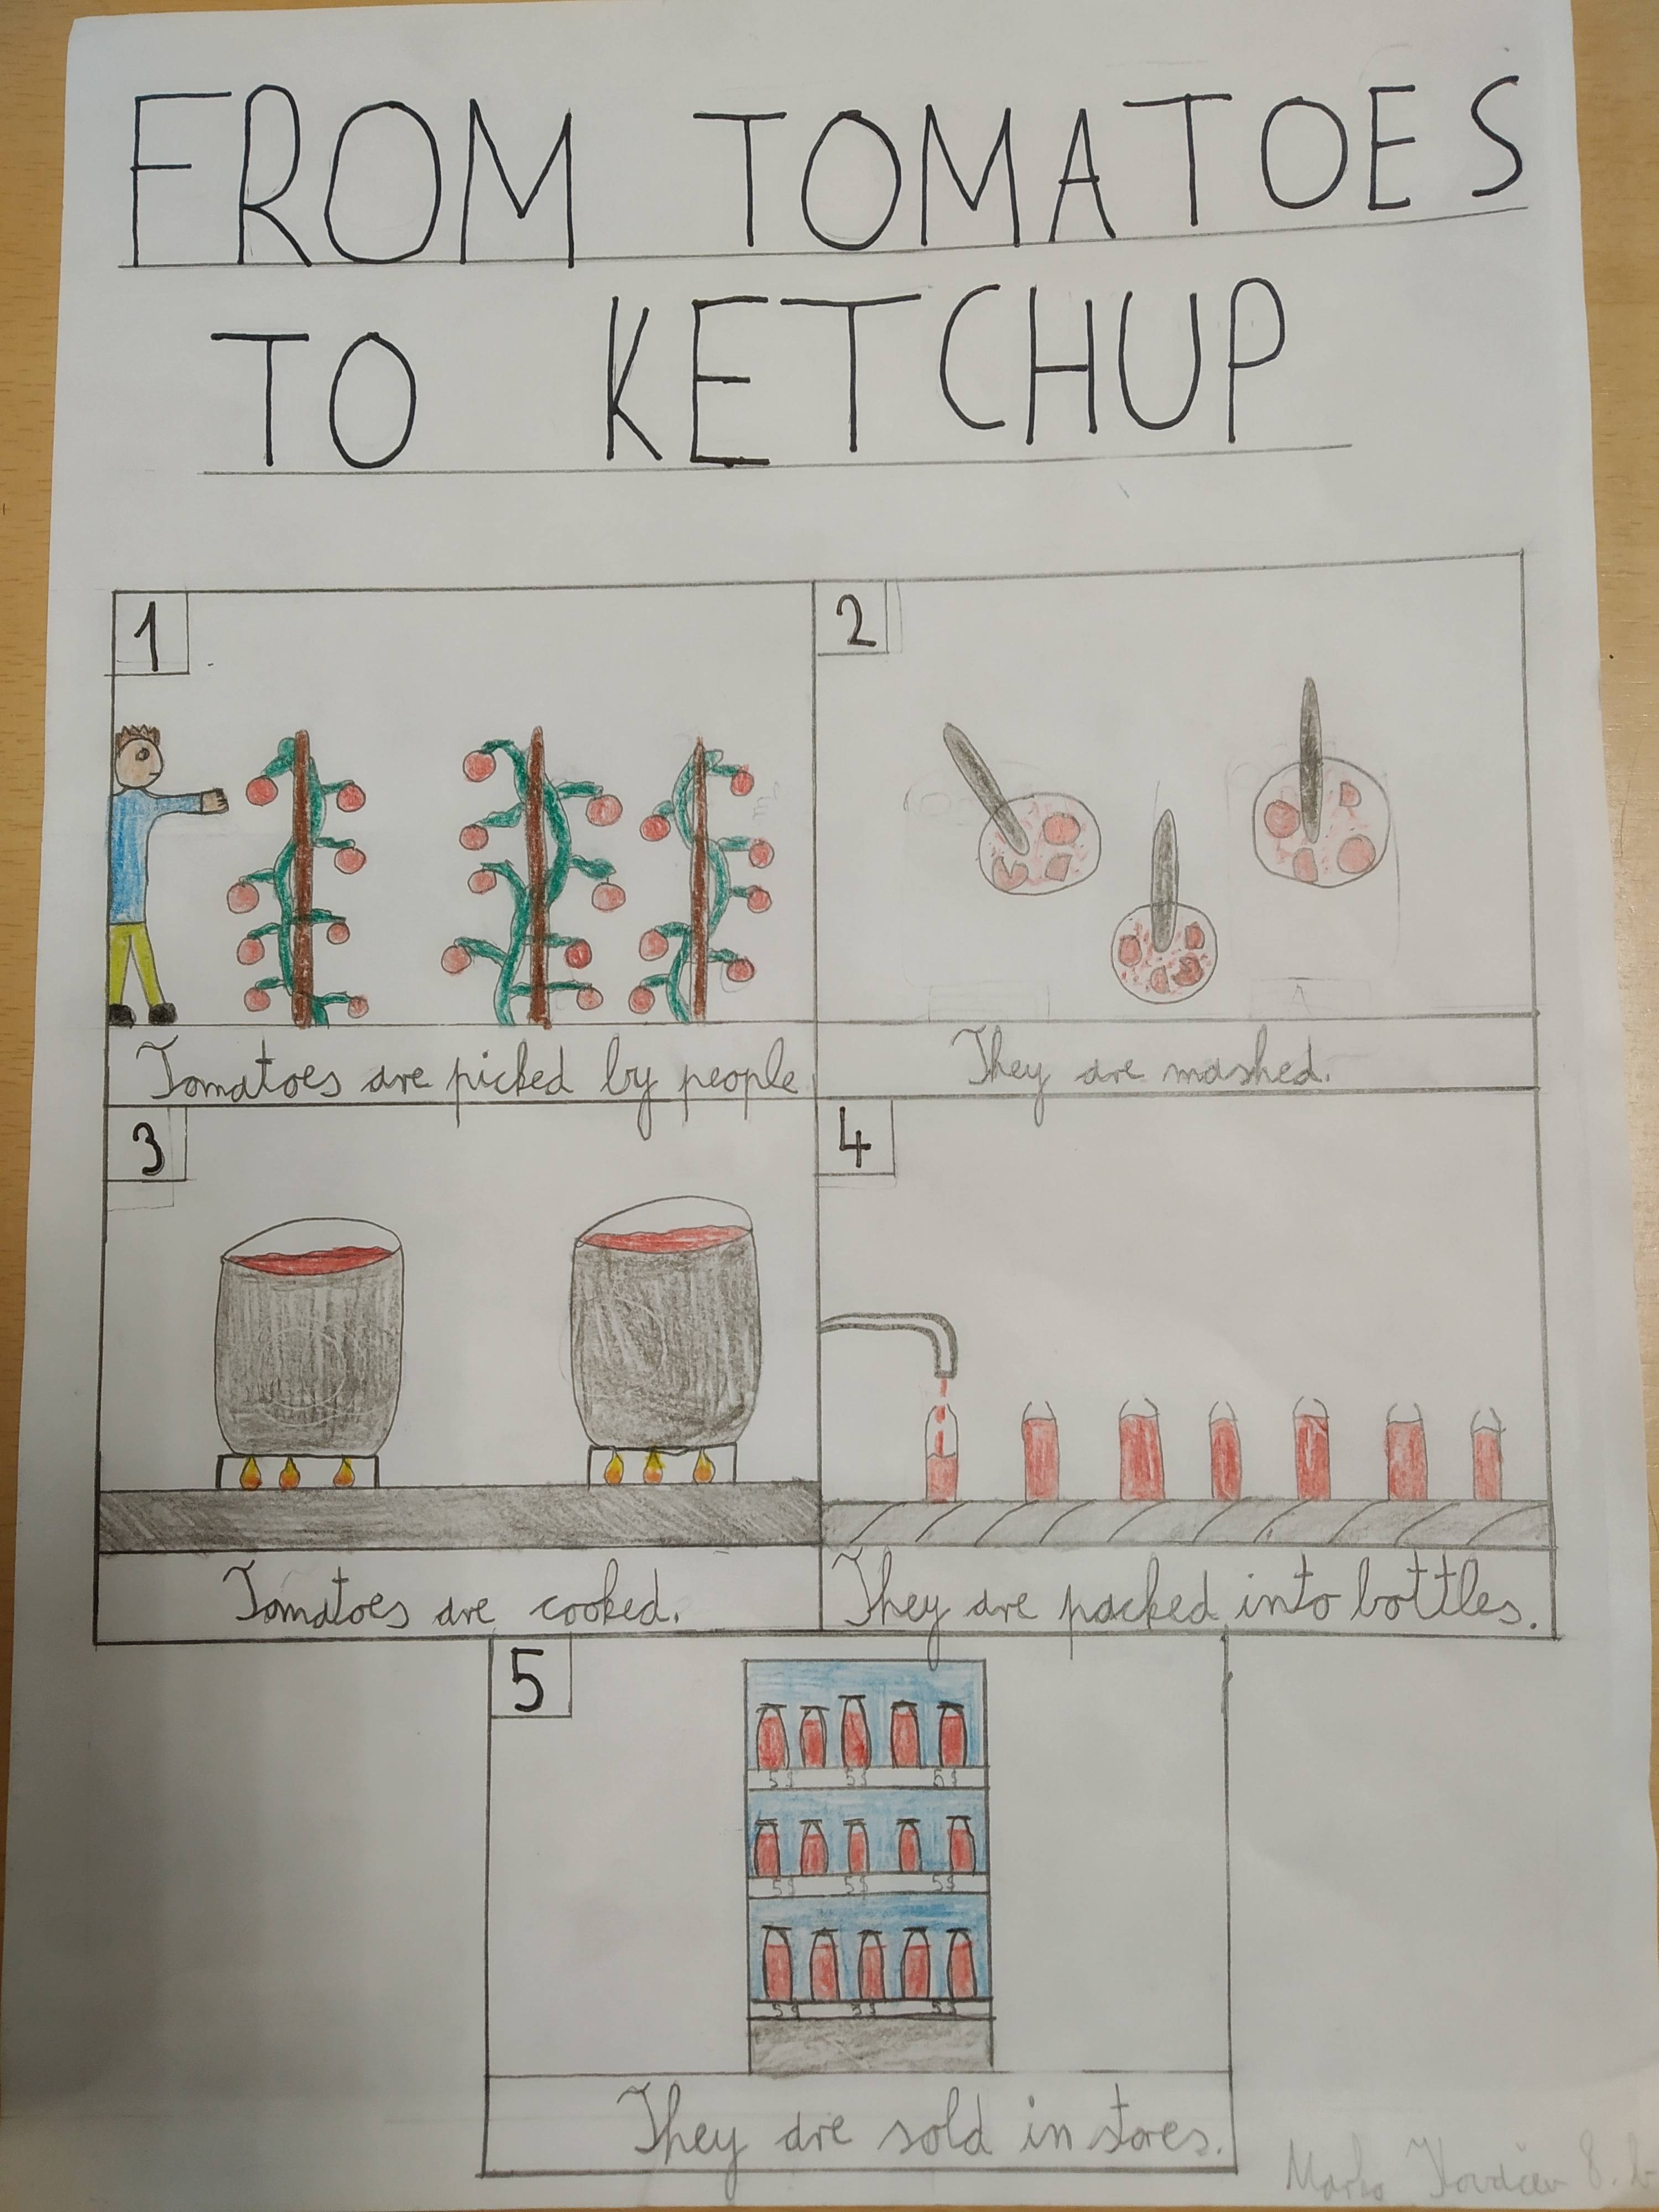 FROM TOMATOES
TO KETCHUP
1
2
Tomatoes are picked by people
They are mashed.
3
4
Tomatoes are cooked.
They are packed into bottles.
5
5$ 5$ 5$
5$ 5$ 5$
5$ 5$ 5$
They are sold in stores.
Marko 8. b